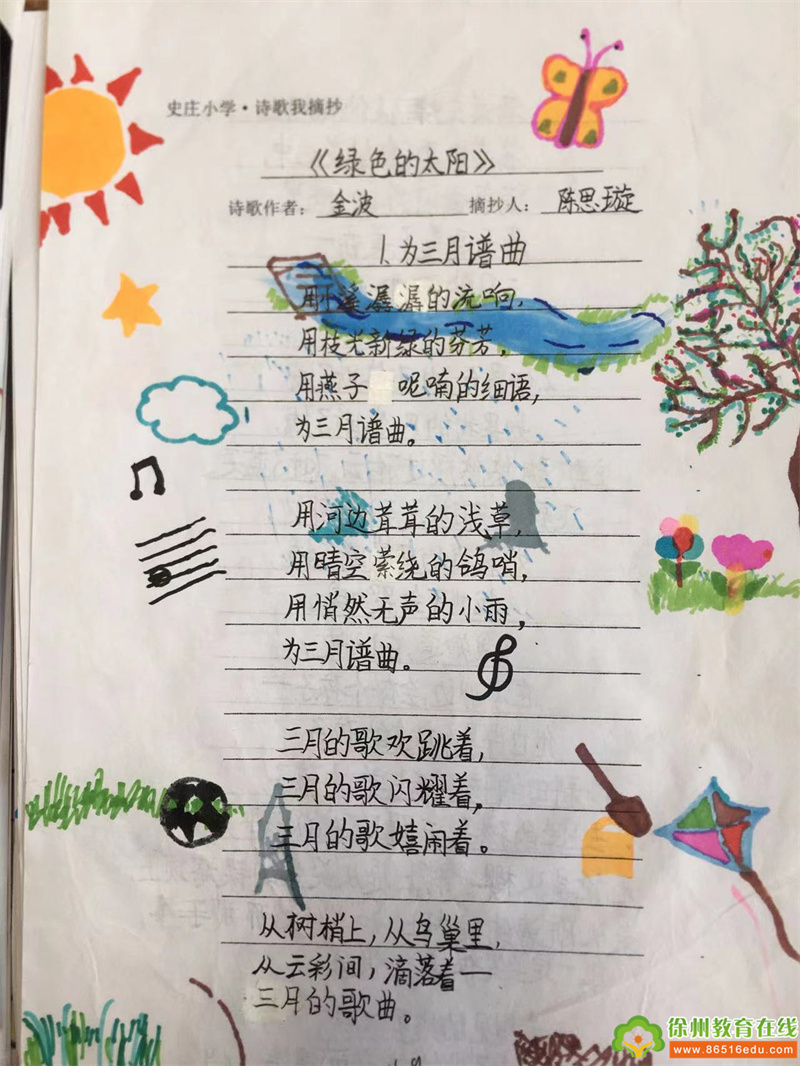 史庄小学·诗歌我摘抄
《绿色的太阳》
诗歌作者: 金波 摘抄人: 陈思璇
1.为三月谱曲
用小溪潺潺的流响,
用枝尖新绿的芬芳,
用燕子呢喃的细语,
为三月谱曲。
用河边茸茸的浅草,
用晴空萦绕的鸽哨,
用悄然无声的小雨,
为三月谱曲。
三月的歌欢跳着,
三月的歌闪耀着,
三月的歌嬉闹着。
从树梢上,从鸟巢里,
从云彩间,滴落着—
三月的歌曲。
徐州教育在线
www.86516edu.com